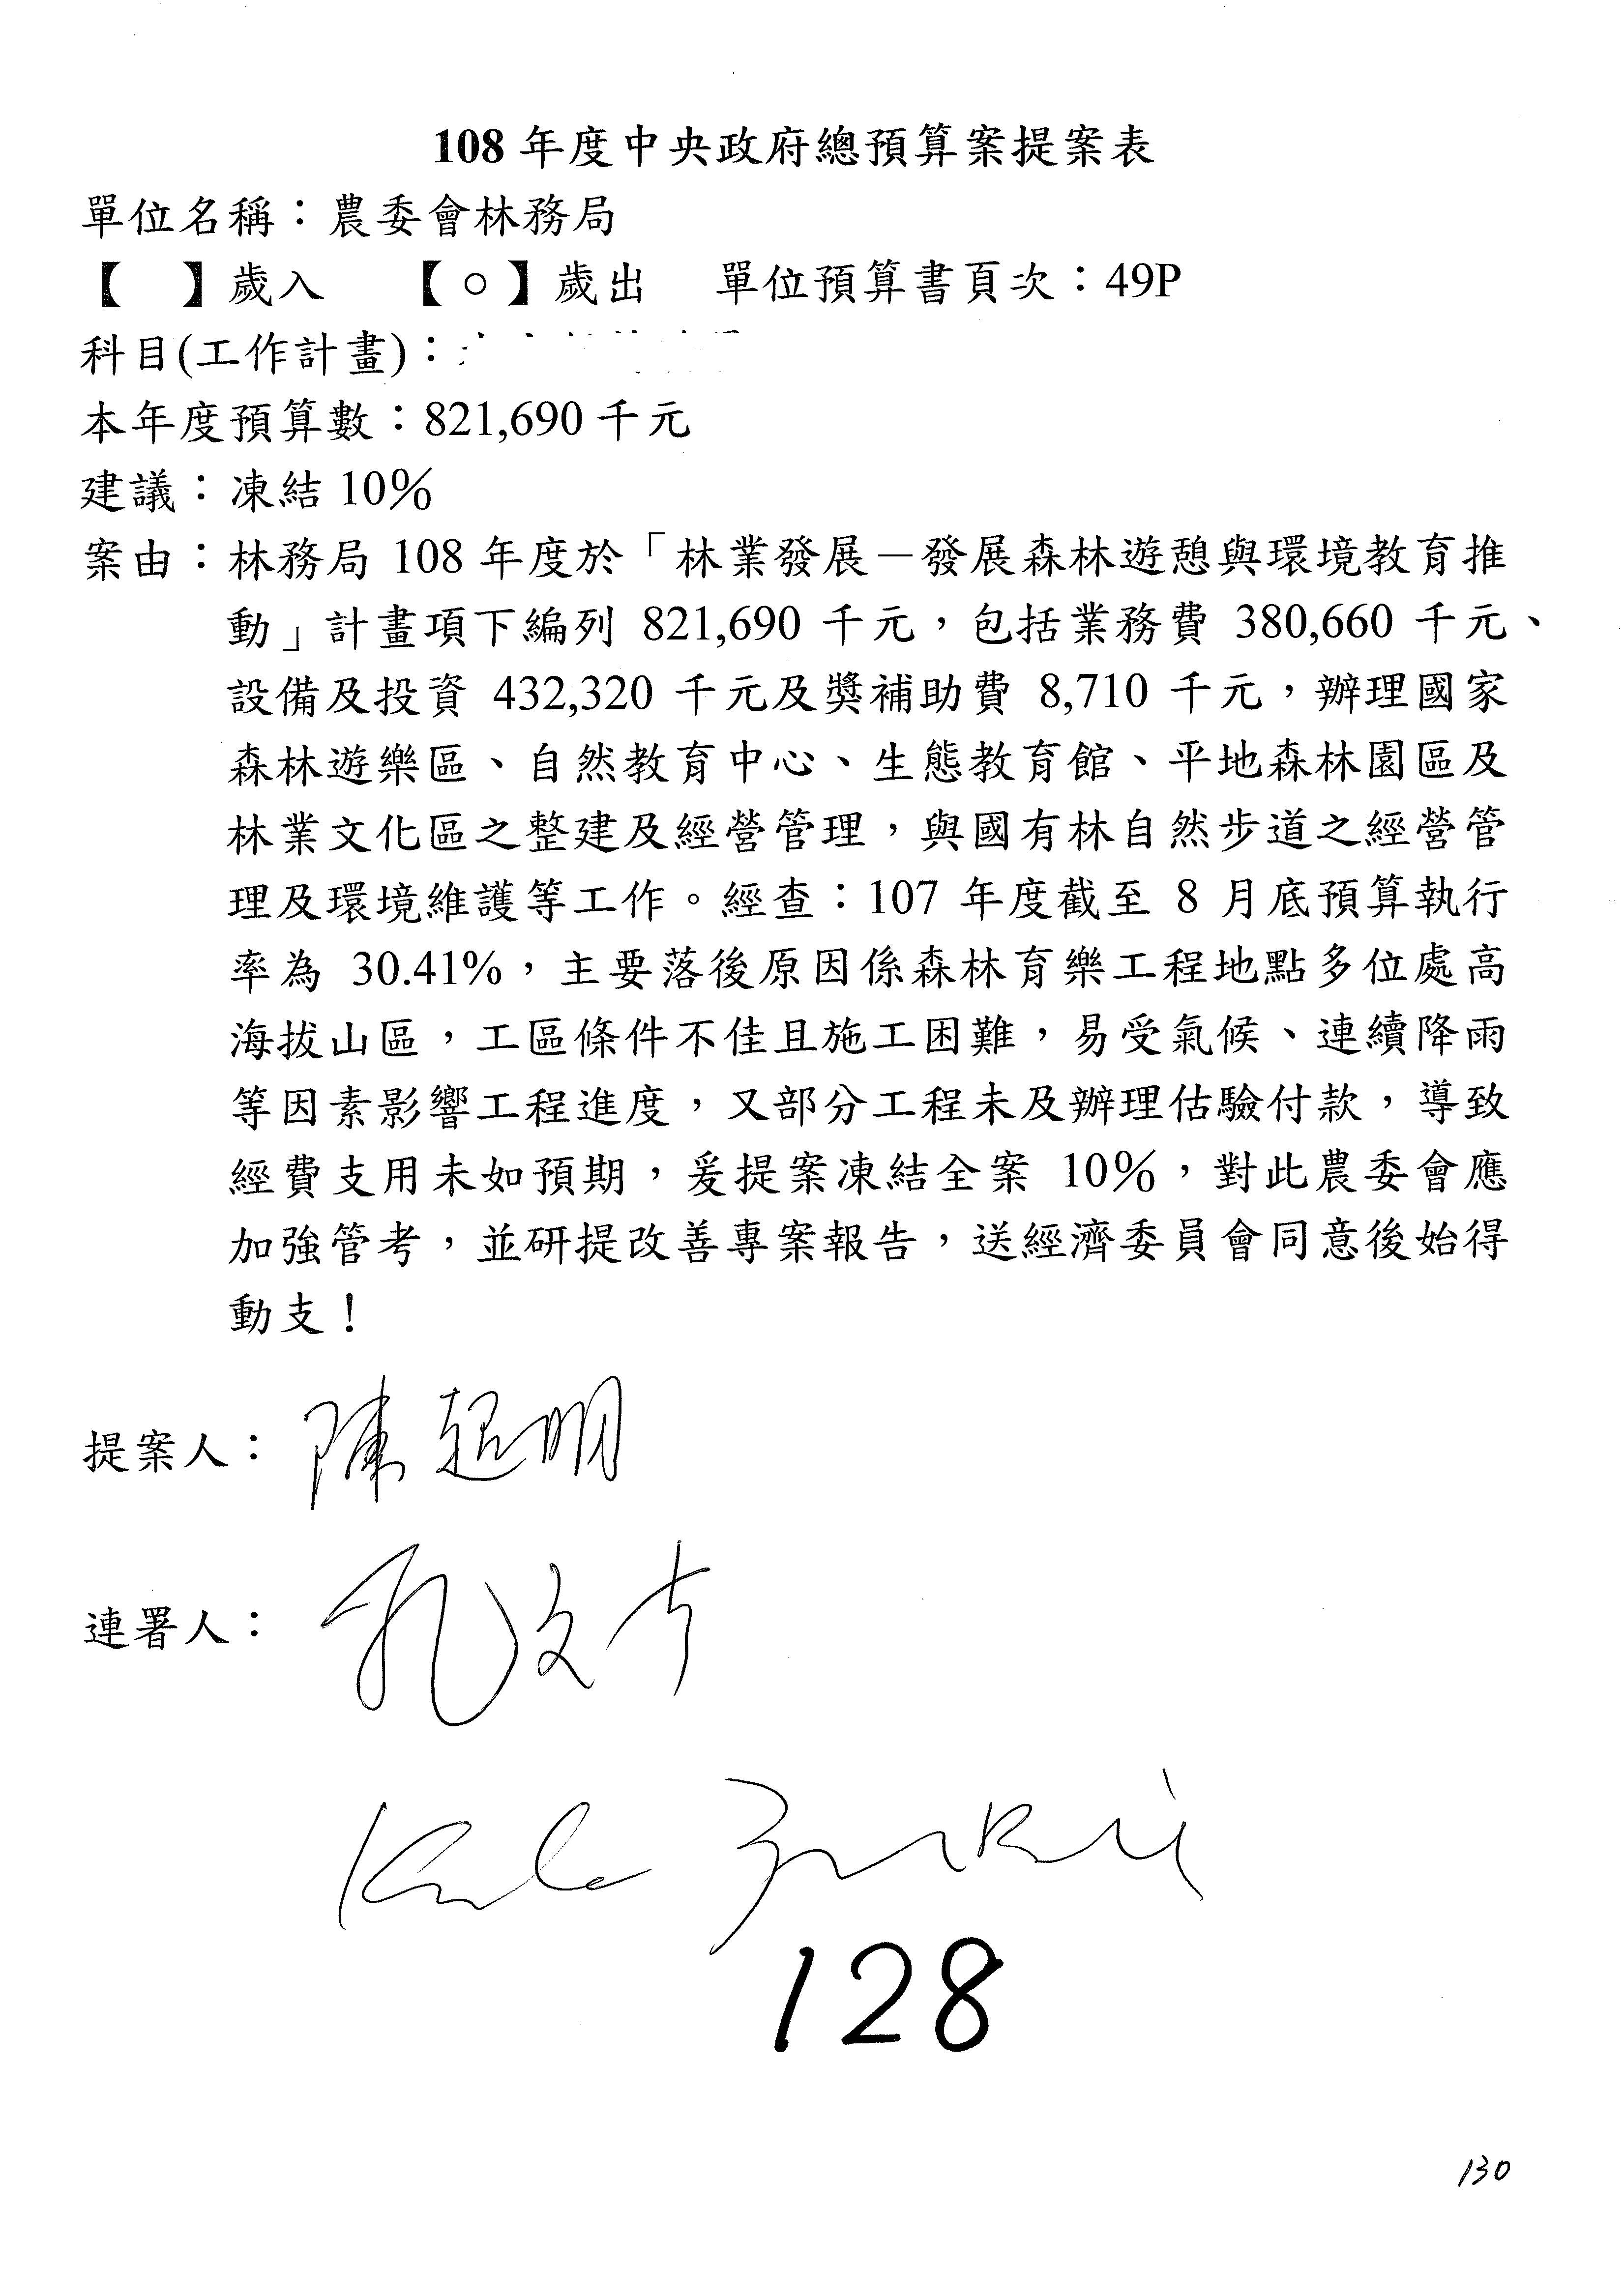 108 年度中央政府總預算案提案表
單位名稱：農委會林務局
【　】歲入　【○】歲出　單位預算書頁次：49P
科目(工作計畫)：
本年度預算數：821,690 千元
建議：凍結 10%
案由：林務局 108 年度於「林業發展－發展森林遊憩與環境教育推
動」計畫項下編列 821,690 千元，包括業務費 380,660 千元、
設備及投資 432,320 千元及獎補助費 8,710 千元，辦理國家
森林遊樂區、自然教育中心、生態教育館、平地森林園區及
林業文化區之整建及經營管理，與國有林自然步道之經營管
理及環境維護等工作。經查：107 年度截至 8 月底預算執行
率為 30.41%，主要落後原因係森林育樂工程地點多位處高
海拔山區，工區條件不佳且施工困難，易受氣候、連續降雨
等因素影響工程進度，又部分工程未及辦理估驗付款，導致
經費支用未如預期，爰提案凍結全案 10%，對此農委會應
加強管考，並研提改善專案報告，送經濟委員會同意後始得
動支！
提案人：陳超明
連署人：孔文吉
128
130